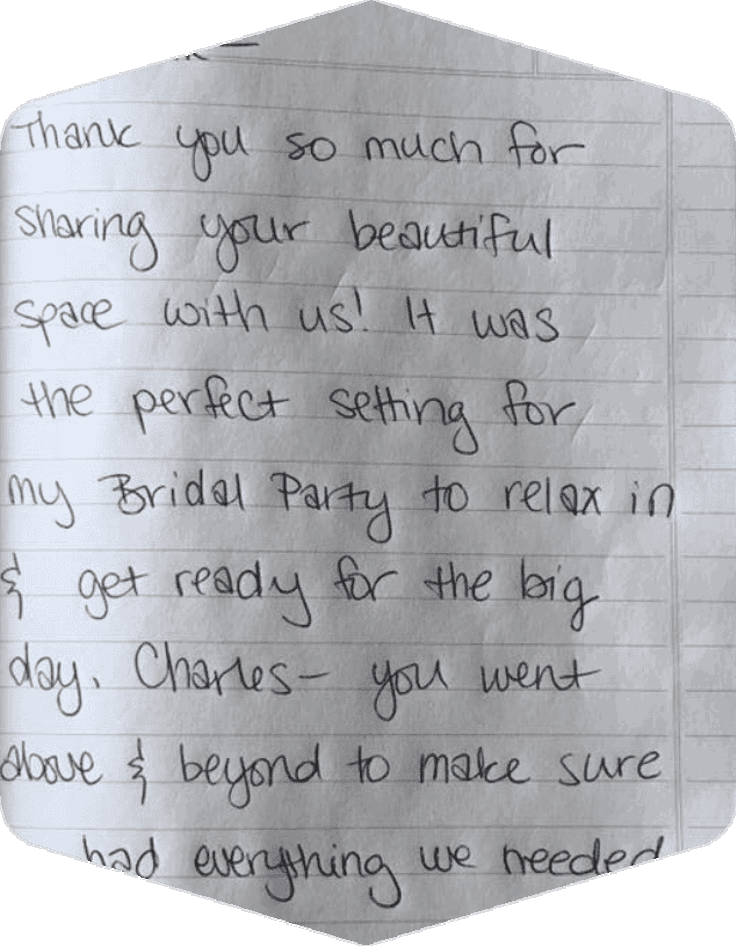 Thank you so much for
sharing your beautiful
space with us! It was
the perfect setting for
my Bridal Party to relax in
& get ready for the big
day. Charles- you went
above & beyond to make sure
had everything we needed